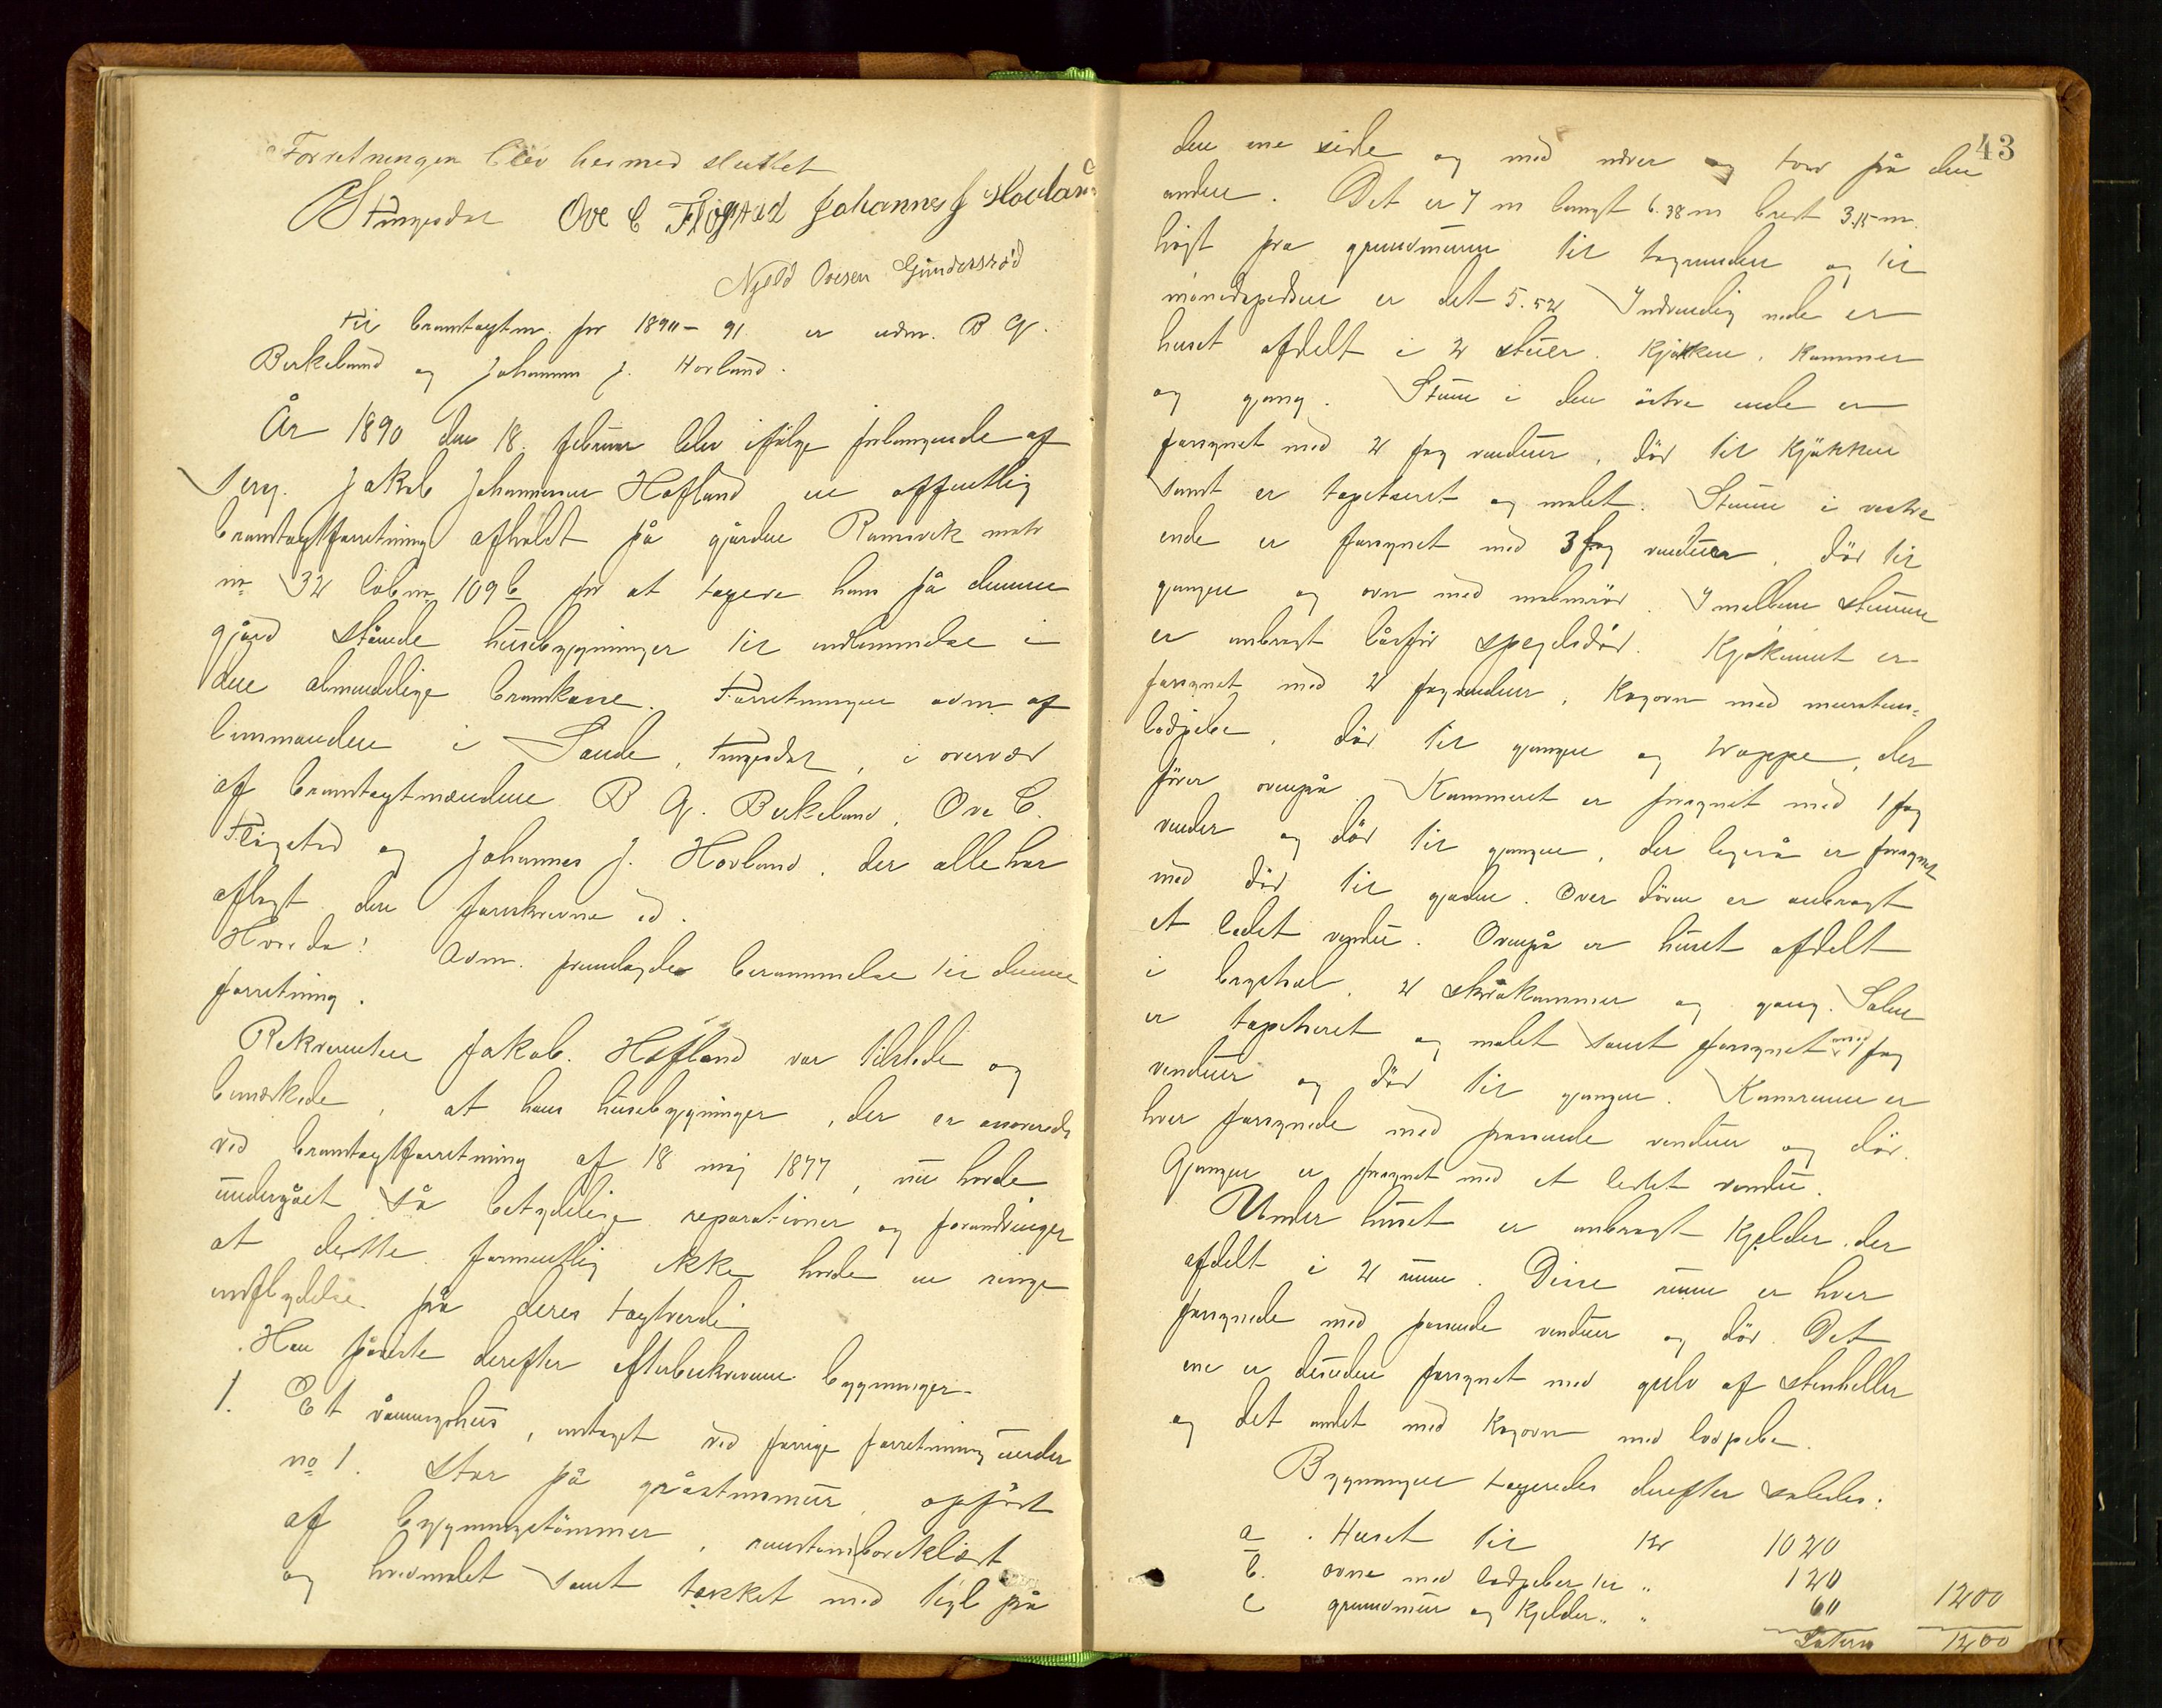 Forretningen blev hermed sluttet
Ove C Flogstad Johannes J Hovland
Njeld Ovesen Gundersrød
Til brandtaxtm. for 1890-91 er udn. B G.
Birkeland og Johannes J. Hovland.
År 1890 den 18. februar blev ifølge forlangende af
serg. Jakob Johannesen Hofland en offentlig
brandtaxtforretning afholdt på gården Ramsvik matr
no 32 løbno 109b for at taxere hans på denne
gård stående husebygninger til indlemmelse i
den almindelige brandkasse. Forretningen adm. af
lensmanden i Sande, Tingsdal, i overvær
af brandtaxtmændene B G. Birkeland, Ove C.
Flogstad og Johannes J. Hovland, der alle har
aflagt den foreskrevne ed.
Hvorda: Adm. fremlagde berammelse til denne
forretning.
Rekvirenten Jakob Hofland var tilstede og
bemærkede, at hans husebygninger, der er assurerede
ved brandtaxtforretning af 18 maj 1877, nu havde
undergået så betydelige reparationer og forandringer
at dette formentlig ikke havde en ringe
indflydelse på deres taxtværdi.
Han påviste derefter efterbeskrevne bygninger.
1. Et våningshus, antaget ved forrige forretning under
no 1. Står på gråstensmur, opført
af bygningstømmer, bordklædt
og hvidmalet samt tækket med tegl på
43
den ene side og med næver og torv på den
anden. Det er 7 m langt 6.38 m bredt 3.15 m
højt fra grundmuren til tagranden og til
mønedspidsen er det 5.52 Indvendig nede er
huset afdelt i 2 stuer. Kjøkken, Kammer
og gang. Stuen i den østre ende er
forsynet med 2 fag vinduer, dør til Kjøkken
samt er tapetseret og malet. Stuen i vestre
ende er forsynet med 3 fag vinduer, dør til
gangen og ovn med malmrør. Imellem stuerne
er anbragt låsfør spegelsdør. Kjøkkenet er
forsynet med 2 fag vinduer, Kogovn med murstens-
ladpibe, dør til gangen og trappe, der
fører ovenpå. Kammeret er forsynet med 1 fag
vinduer og dør til gangen, der ligeså er forsynet
med dør til gaden. Over døren er anbragt
et ledet vindu. Ovenpå er huset afdelt
i bygstsal, 2 skråkammer og gang. Salen
er tapetseret og malet samt forsynet med 1 fag
vinduer og dør til gangen. Kammerne er
hver forsynede med passende vinduer og dør.
Gangen er forsynet med et ledet vindu.
Under huset er anbragt Kjelder, der
afdelt i 2 rum. Disse rum er hver
forsynede med passende vinduer og dør. Det
ene er desuden forsynet med gulv af stenheller
og det andet med Kogovn med ladpibe.
Bygningen taxeredes derefter således:
a. Huset til Kr 1020
b. ovne med ladpiber til " 120
c grundmur og Kjelder " " 60 1200
Latera 1200